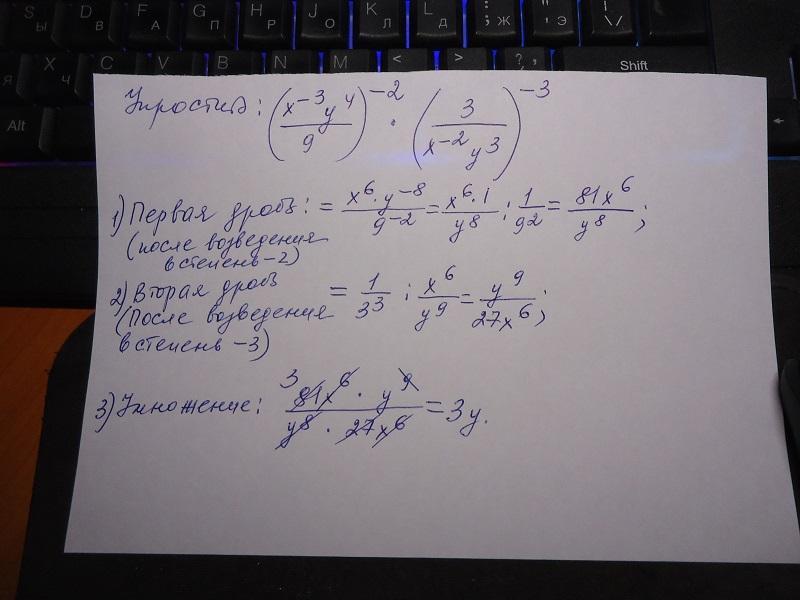 S Ы
D В
F А
G П
H Р
J О
K Л
L Д
: ; Ж
" ' Э
| \ /
Я
X Ч
C
V
B
N
M
<
>
? ,
Shift
Alt
Упростить: (x⁻³y⁴/9)⁻² · (3/x⁻²y³)⁻³
1) Первая дробь: = x⁶·y⁻⁸/9⁻² = x⁶·1/y⁸ : 1/9² = 81x⁶/y⁸;
(после возведения
в степень -2)
2) Вторая дробь = 1/3³ : x⁶/y⁹ = y⁹/27x⁶;
(После возведения
в степень -3)
3) Умножение: ³81x⁶ · y⁹/y⁸ · 27x⁶ = 3y.